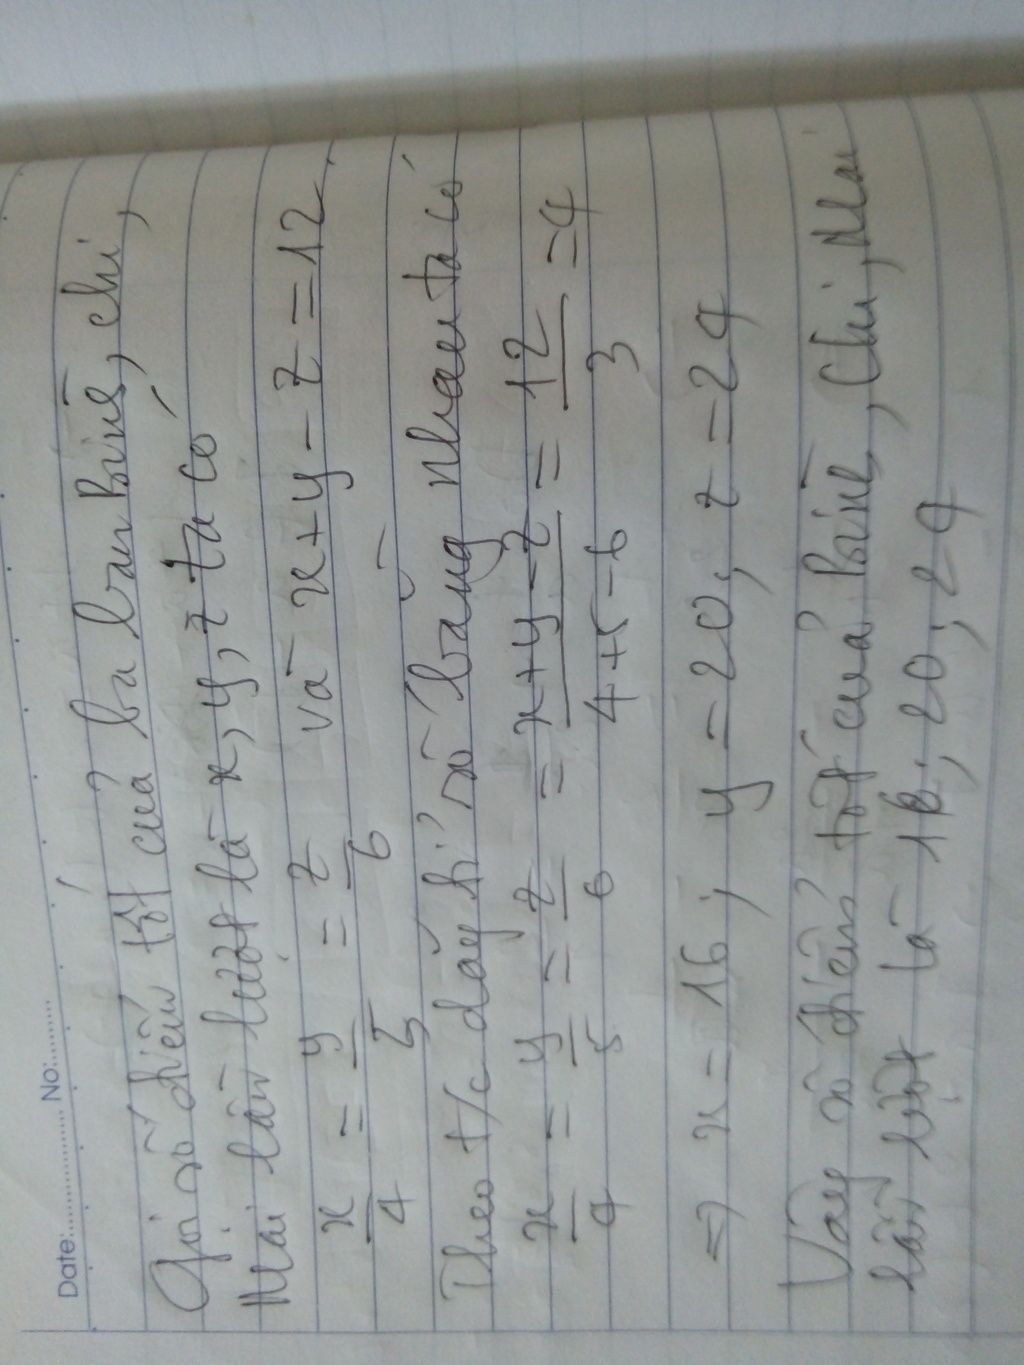 Date:.................. No:............
Gọi số điểm tốt của ba bạn Bình, chi,
Mai lần lượt là x, y, z ta có
x/4 = y/5 = z/6 và x+y-z=12
Theo t/c dãy tỉ số bằng nhau ta có
x/4 = y/5 = z/6 = x+y-z/4+5-6 = 12/3 =4
=> x=16; y=20; z=24
Vậy số điểm tốt của Bình, Chi, Mai
lần lượt là 16; 20; 24